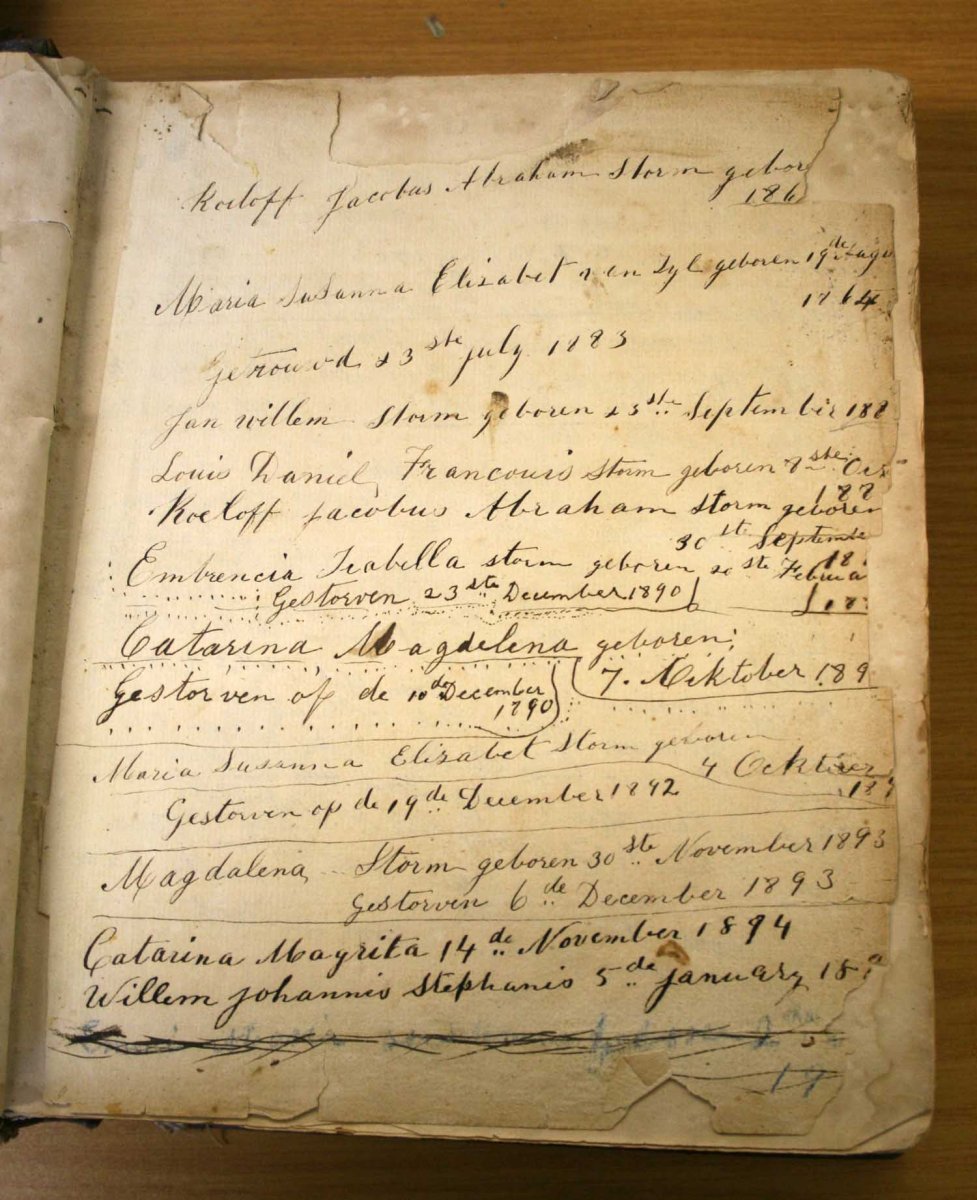 Roeloff Jacobus Abraham Storm gebor
186
Maria Susanna Elizabet van Zyl geboren 19de Augu
1864
Getrouwd 23ste July 1883
Jan Willem Storm geboren 23ste September 188
Louis Daniel Francouis Storm geboren 8ste Oc
188
Roeloff Jacobus Abraham Storm geboren
30ste Septembe
18
Embrencia Isabella Storm geboren 20ste Februa
Gestorven 23ste December 1890
18
Catarina Magdelena geboren
7. Ocktober 189
Gestorven op de 10de December
1890
Maria Susanna Elizabet Storm geboren
4 Ocktober
189
Gestorven op de 19de December 1892
Magdalena Storm geboren 30ste November 1893
Gestorven 6de December 1893
Catarina Magrita 14de November 1894
Willem Johannis Stephanis 5de January 18
19